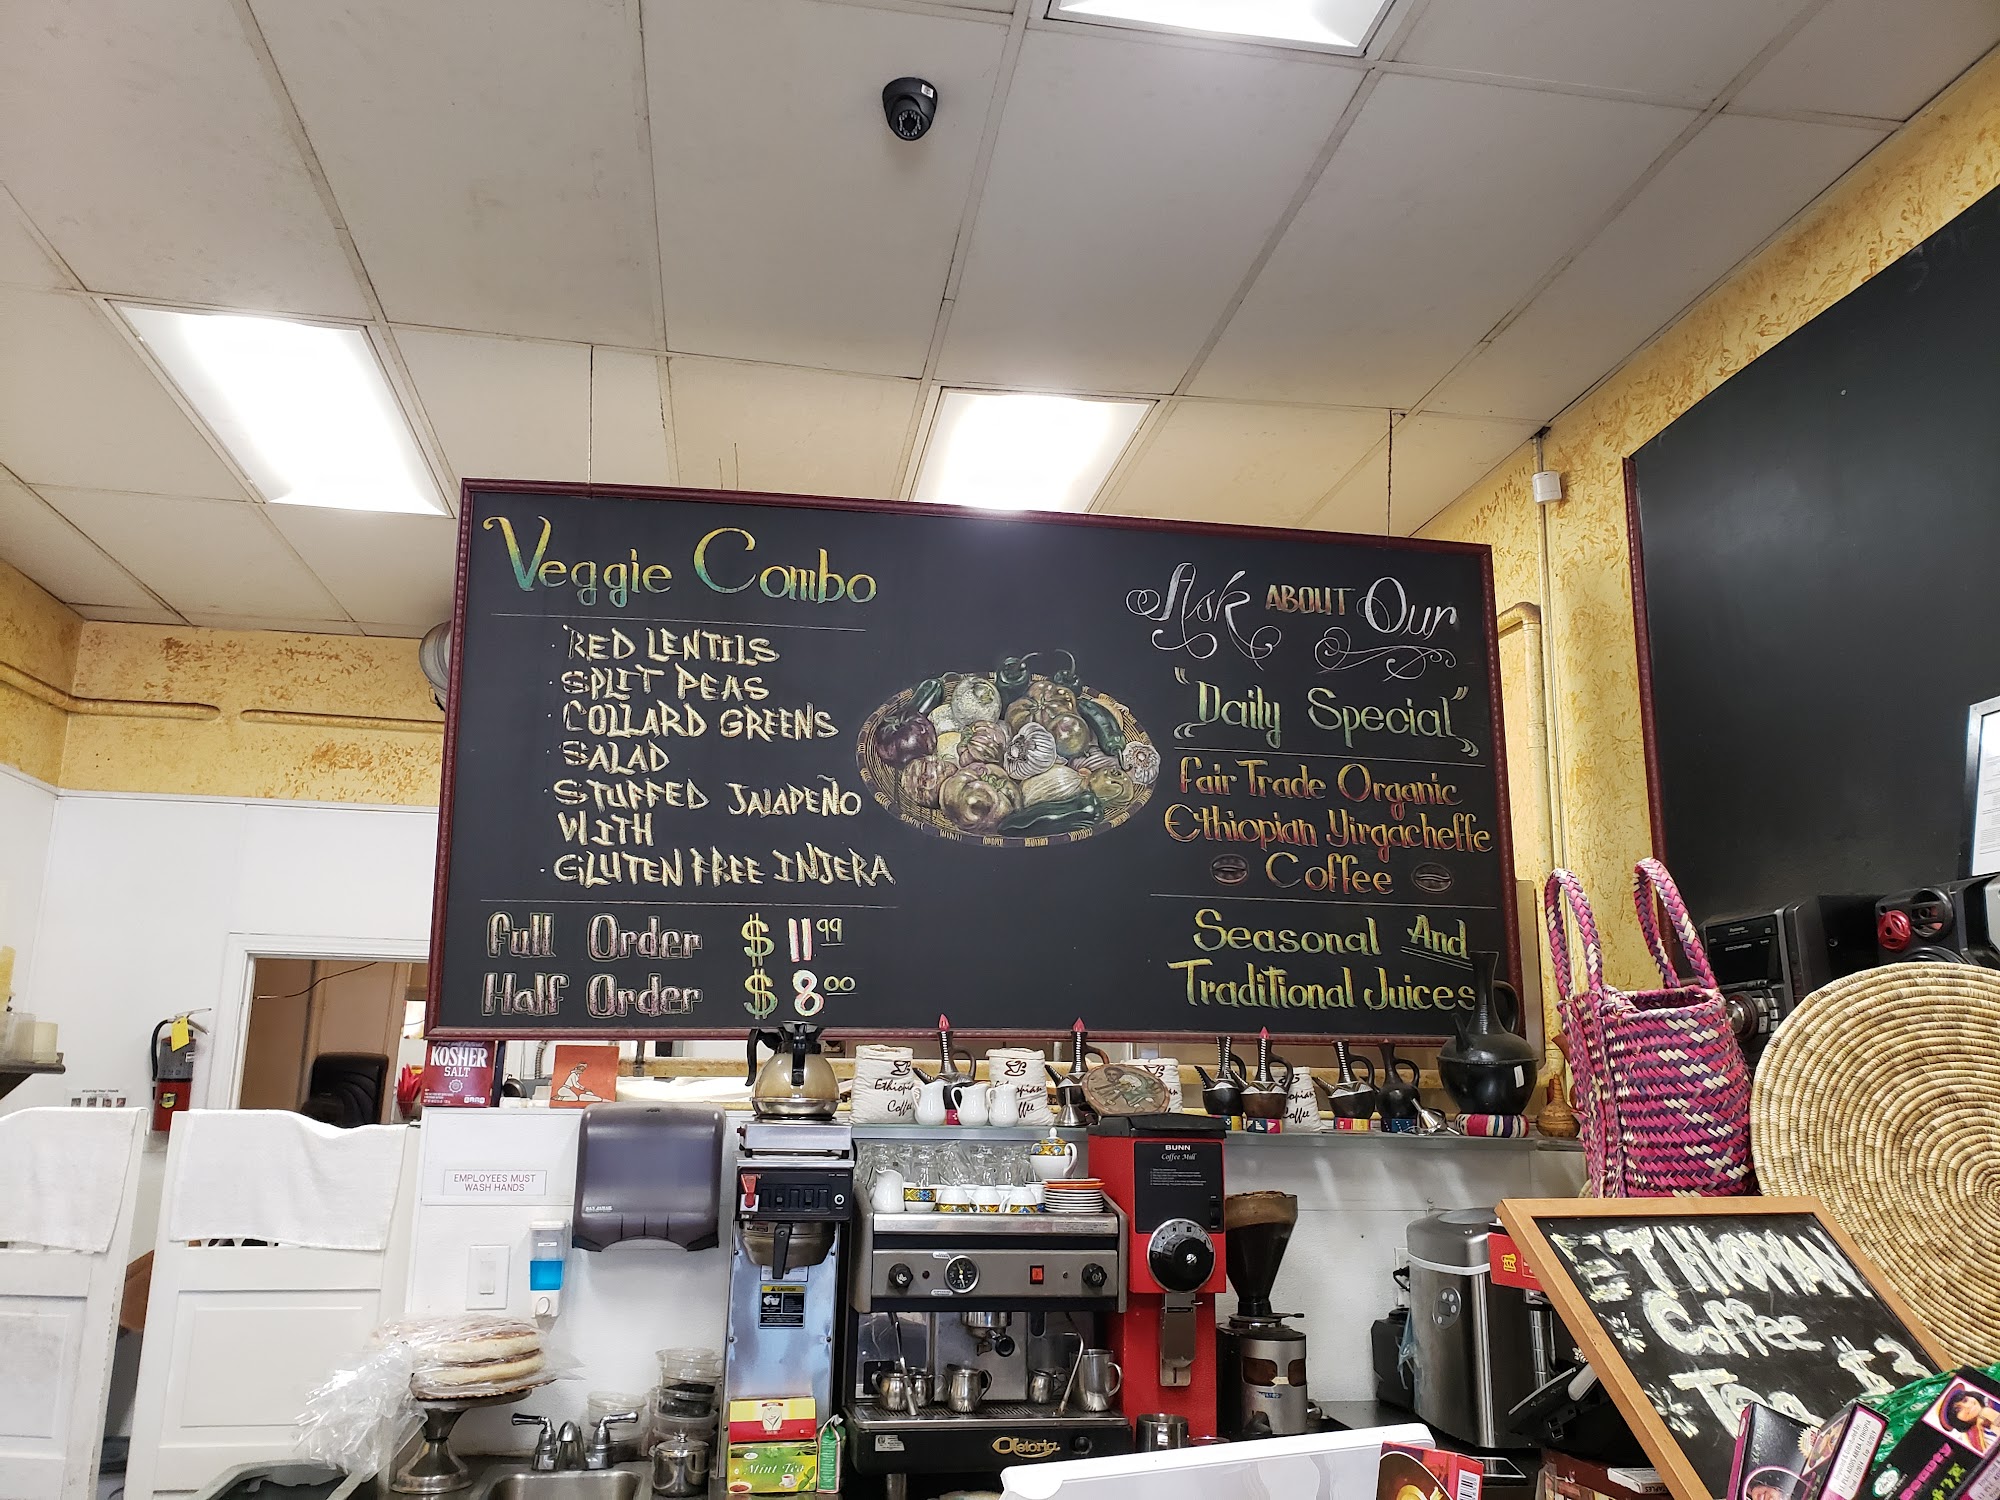 Veggie Combo
· RED LENTILS
· SPLIT PEAS
· COLLARD GREENS
· SALAD
· STUFFED JALAPEÑO
WITH
· GLUTEN FREE INJERA
Full Order $ 11.99
Half Order $ 8.00
Ask ABOUT Our
"Daily Special"
Fair Trade Organic
Ethiopian Yirgacheffe
Coffee
Seasonal And
Traditional Juices
KOSHER
SALT
EMPLOYEES MUST
WASH HANDS
Ethiopian
Coffee
BUNN
Coffee Mill
CAUTION
Astoria
Mint Tea
ETHIOPIAN
Coffee $3
Tea